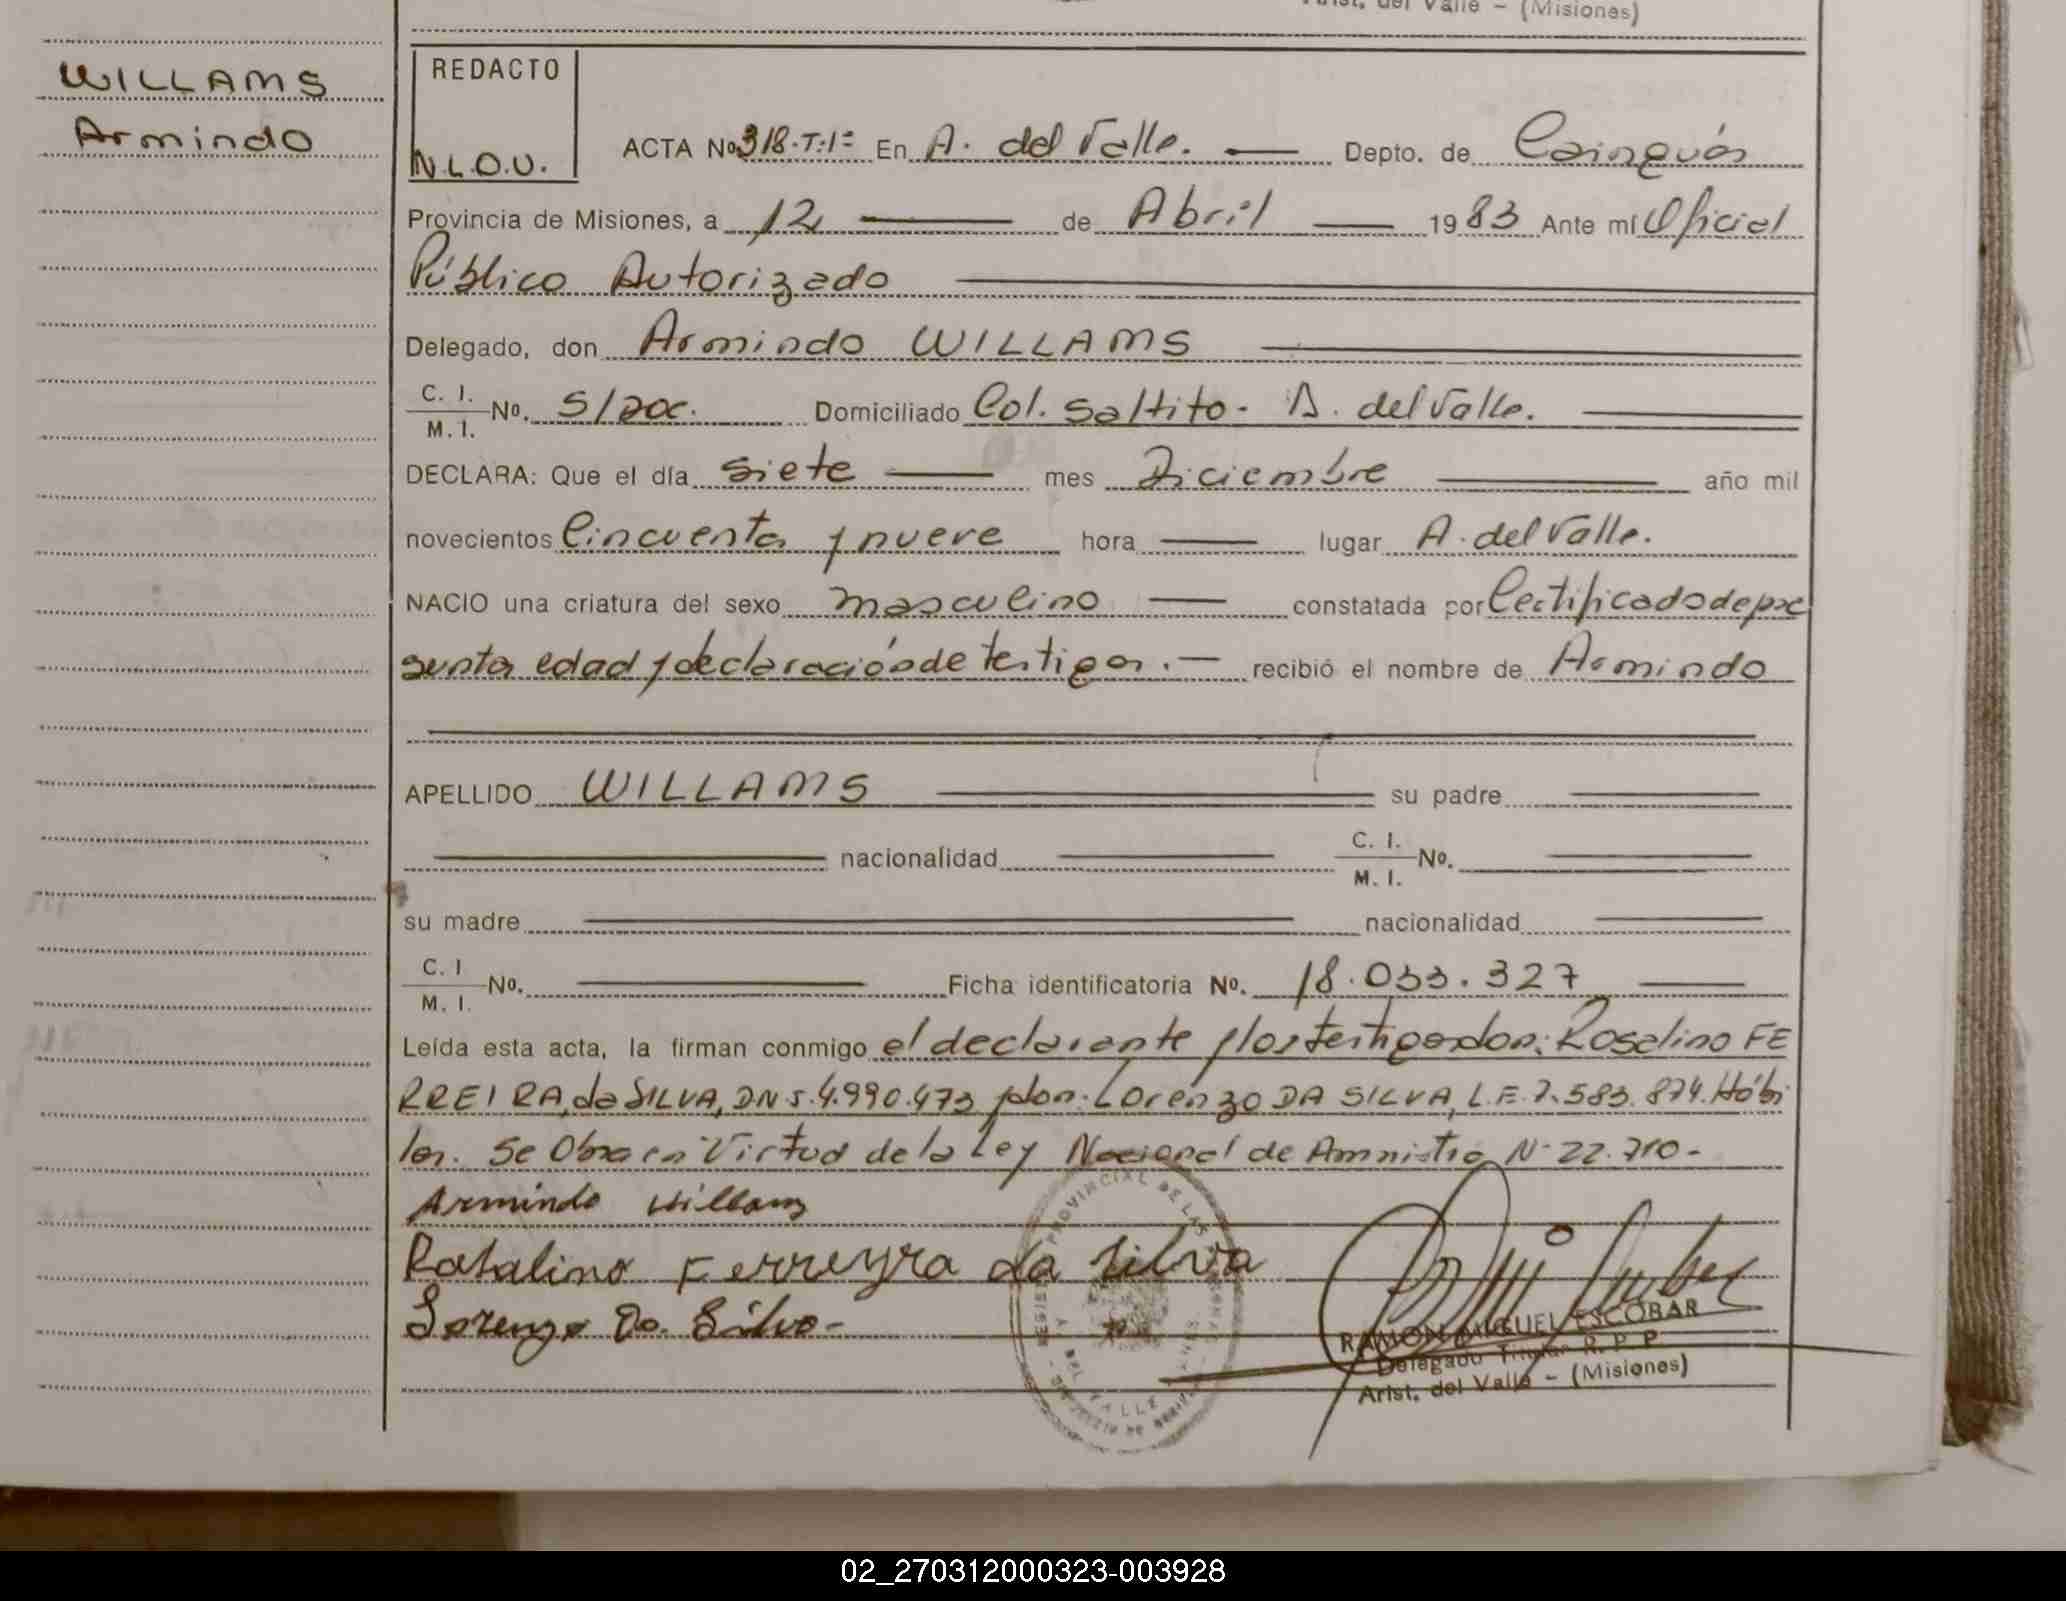 Arist. del Valle - (Misiones)
WILLAMS
Armindo
REDACTO
N.L.O.U.
ACTA Nº 318-T:1º En A. del Valle. Depto. de Cainguás
Provincia de Misiones, a 12 de Abril 1983 Ante mí Oficial
Público Autorizado
Delegado, don Armindo WILLAMS
C. I.
M. I. Nº. S/doc. Domiciliado Col. Saltito - A. del Valle.
DECLARA: Que el día siete mes Diciembre año mil
novecientos Cincuenta y nueve hora lugar A. del Valle.
NACIO una criatura del sexo masculino constatada por Certificado de pre
sunta edad y declaración de testigos. recibió el nombre de Armindo
APELLIDO WILLAMS su padre
nacionalidad C. I.
M. I. Nº.
su madre nacionalidad
C. I
M. I. Nº. Ficha identificatoria Nº. 18.033.327
Leída esta acta, la firman conmigo el declarante y los testigos don: Roselino FE
RREIRA, da SILVA, DNI. 4.990.473 y don: Lorenzo DA SILVA, L.E. 7.583.874. Hábi
les. Se Obra en Virtud de la Ley Nacional de Amnistia Nº 22.710-
Armindo Willams
Rosalino Ferreyra da Silva
Lorenzo Da. Silva-
REGISTRO PROVINCIAL DE LAS PERSONAS
DEL VALLE
RAMON MIGUEL ESCOBAR
Delegado Titular R. P. P.
Arist. del Valle - (Misiones)
02_270312000323-003928